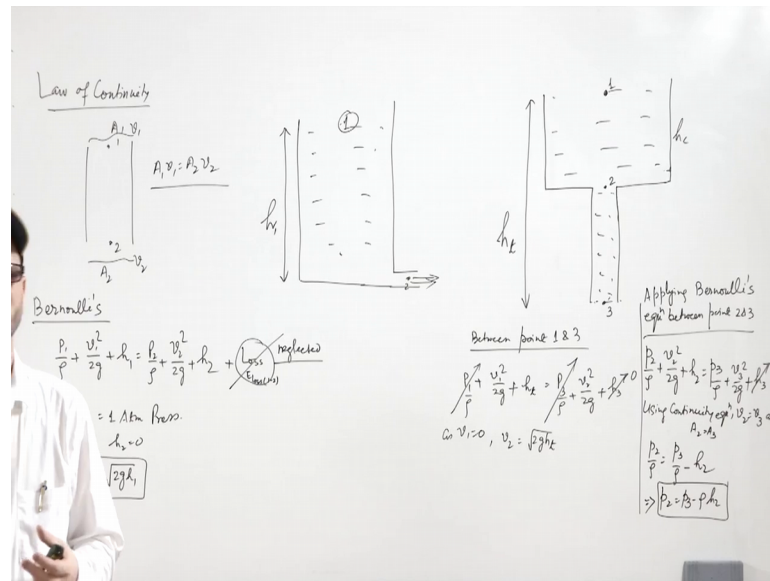 Law of Continuity
A₁ v₁
1
A₁v₁ = A₂v₂
2
A₂ v₂
Bernoulli's
P₁/ρ + v₁²/2g + h₁ = P₂/ρ + v₂²/2g + h₂ + Loss neglected
= 1 Atm Press.
h₂=0
√2gh₁
1
h₁
2
1
h_c
2
h_t
3
Between point 1 & 3
P₁/ρ + v₁²/2g + h_t = P₃/ρ + v₃²/2g + h₃ 0
as v₁=0, v₂ = √2gh_t
Applying Bernoulli's
eqⁿ between point 2&3
P₂/ρ + v₂²/2g + h₂ = P₃/ρ + v₃²/2g + h₃
Using Continuity eqⁿ, v₂ = v₃
A₂=A₃
P₂/ρ = P₃/ρ - h₂
⇒ P₂ = P₃ - ρh₂